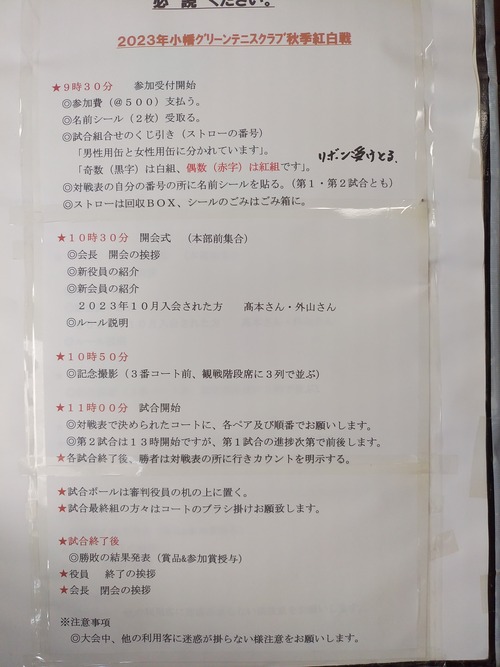 必読ください。
2023年小幡グリーンテニスクラブ秋季紅白戦
★9時30分 参加受付開始
◎参加費(@500)支払う。
◎名前シール(2枚)受取る。
◎試合組合せのくじ引き(ストローの番号)
「男性用缶と女性用缶に分かれています」。
リボン受けとる。
「奇数(黒字)は白組、偶数(赤字)は紅組です」。
◎対戦表の自分の番号の所に名前シールを貼る。(第1・第2試合とも)
◎ストローは回収BOX、シールのごみはごみ箱に。
★10時30分 開会式 (本部前集合)
◎会長 開会の挨拶
◎新役員の紹介
◎新会員の紹介
2023年10月入会された方 髙本さん・外山さん
◎ルール説明
★10時50分
◎記念撮影(3番コート前、観戦階段席に3列で並ぶ)
★11時00分 試合開始
◎対戦表で決められたコートに、各ペア及び順番でお願いします。
◎第2試合は13時開始ですが、第1試合の進捗次第で前後します。
★各試合終了後、勝者は対戦表の所に行きカウントを明示する。
★試合ボールは審判役員の机の上に置く。
★試合最終組の方々はコートのブラシ掛けお願致します。
★試合終了後
◎勝敗の結果発表(賞品&参加賞授与)
★役員 終了の挨拶
★会長 閉会の挨拶
※注意事項
◎大会中、他の利用客に迷惑が掛らない様注意をお願いします。